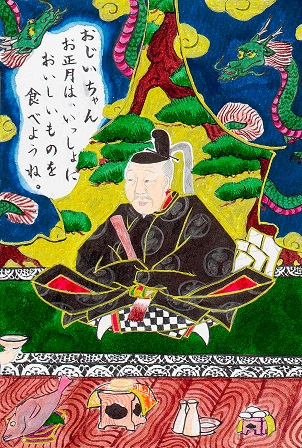 おじいちゃん
お正月は、いっしょに
おいしいものを
食べようね。